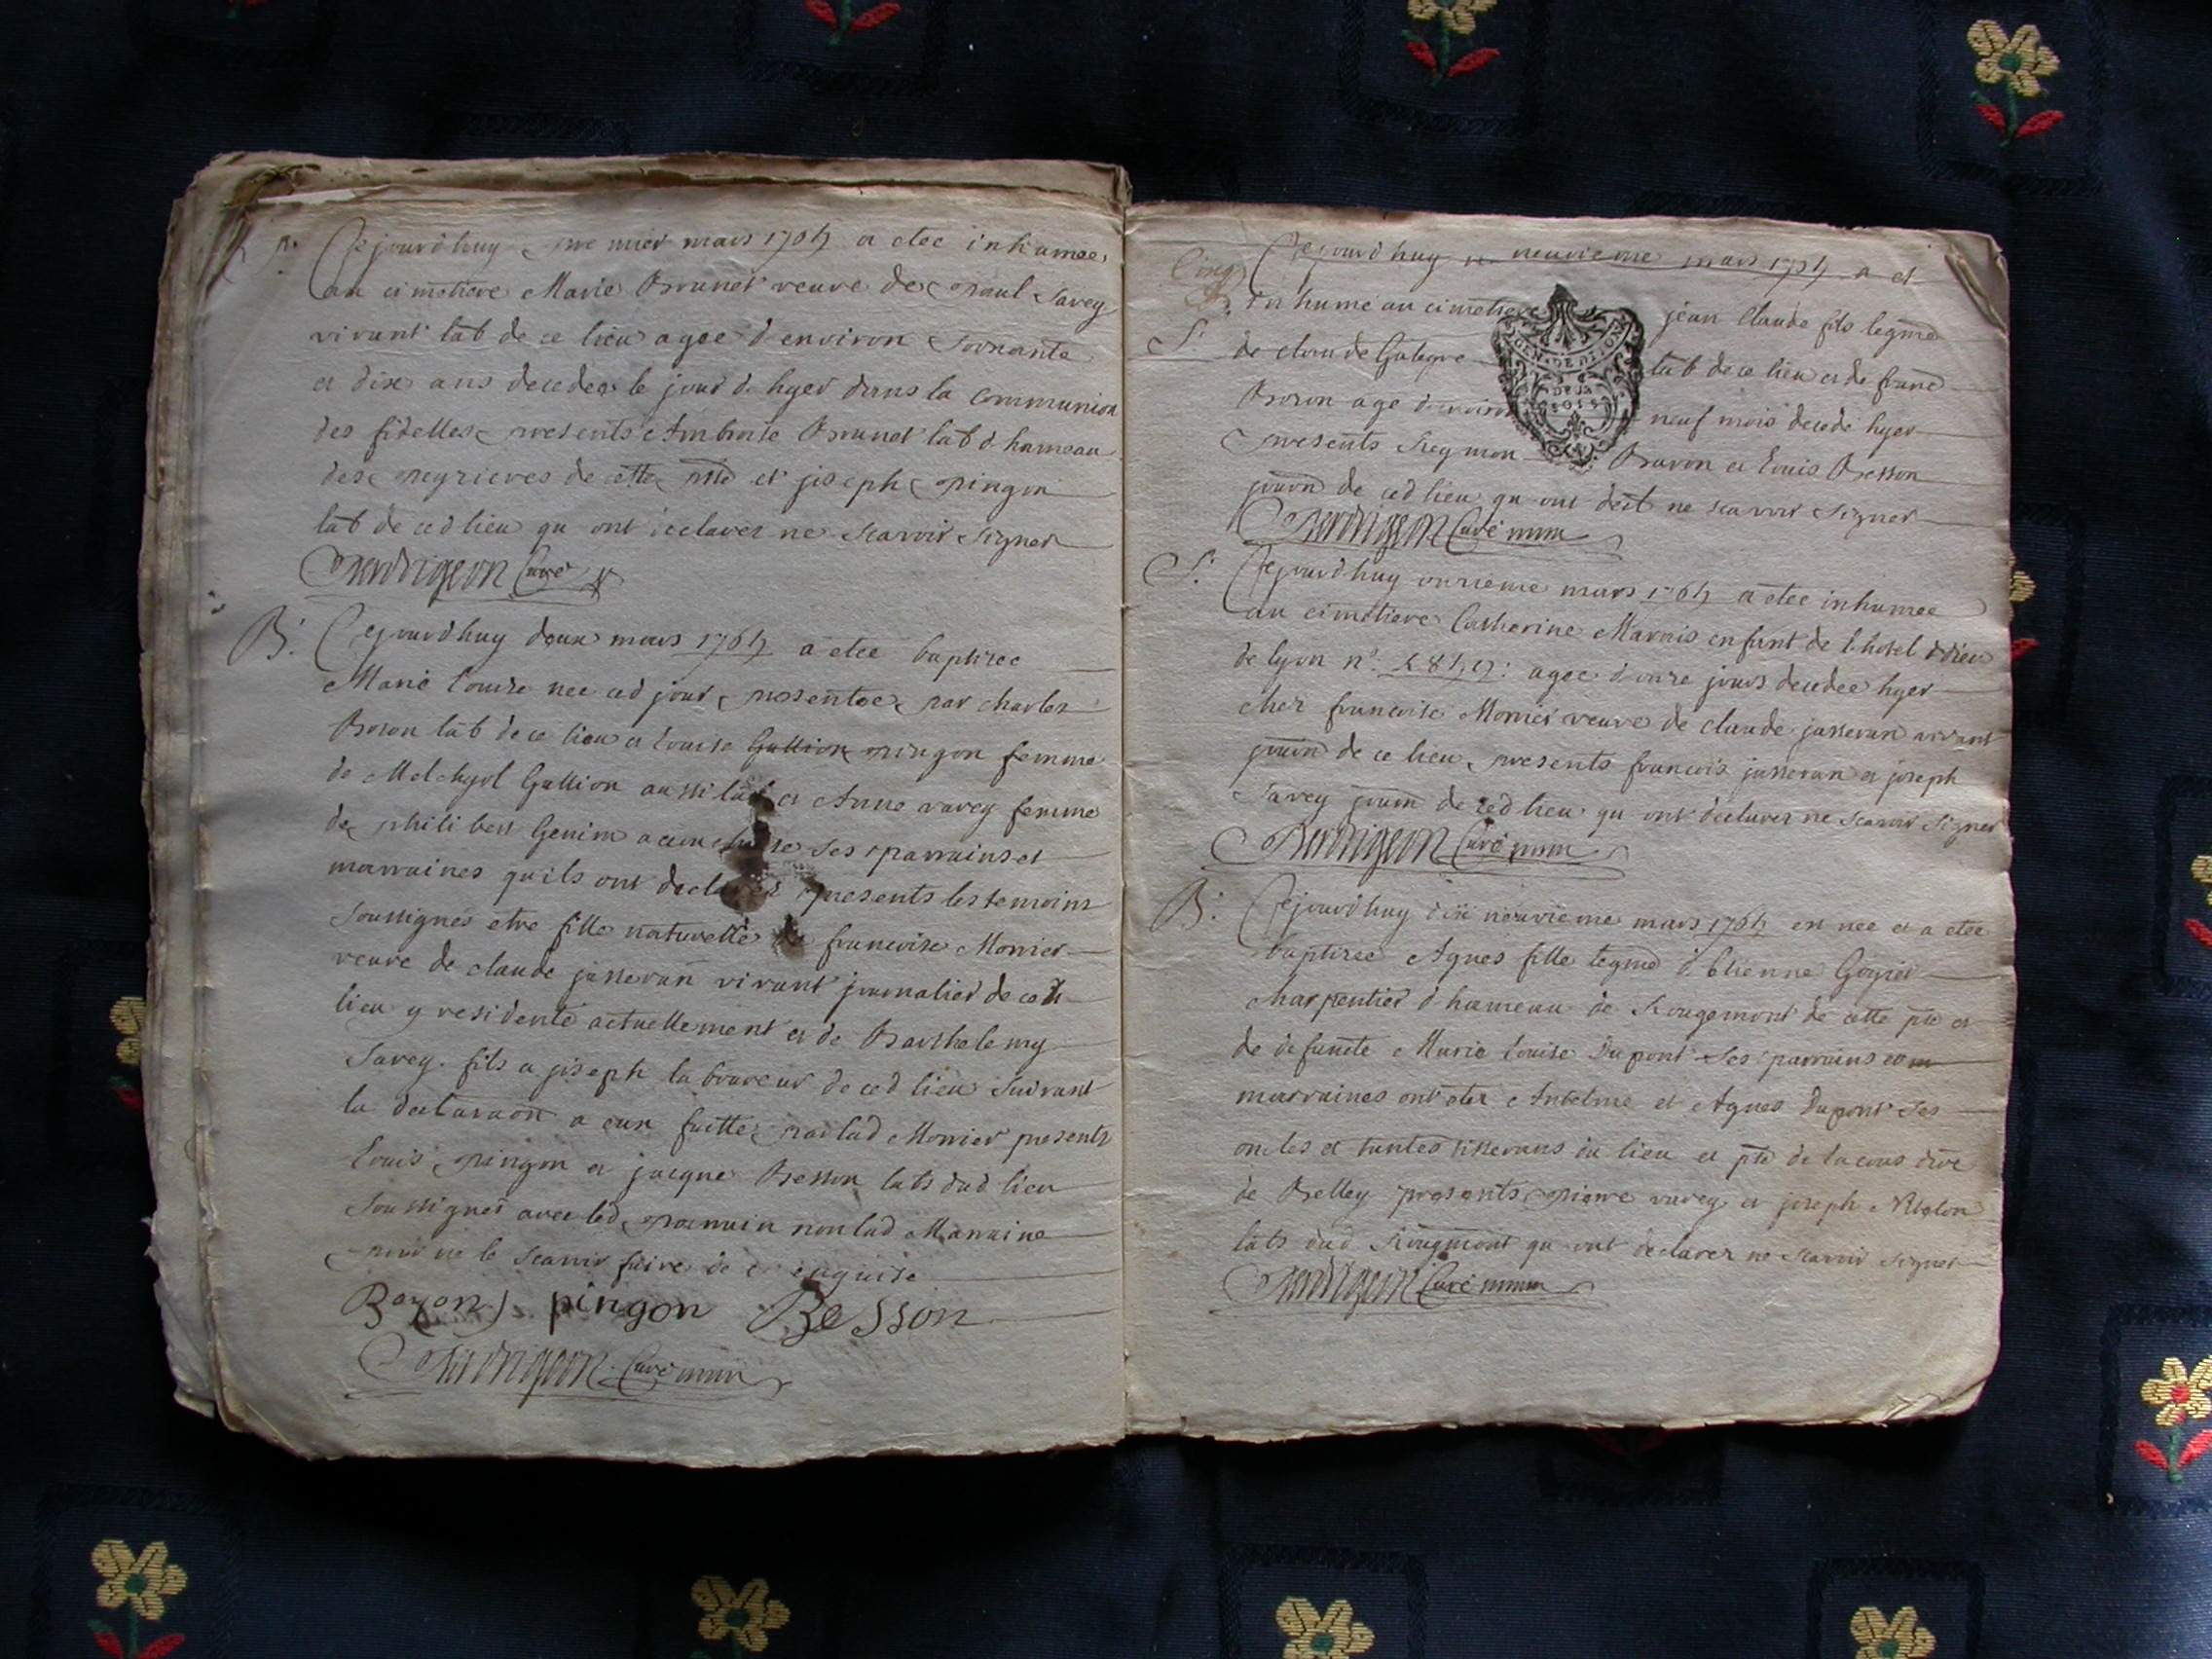 S. Cejourdhuy premier mars 1764 a etee inhumee
au cimetiere Marie Brunet veuve de Paul Savey
vivant lab de ce lieu agee d'environ soixante
et dix ans decedee le jour d hyer dans la communion
des fidelles presents Ambroise Brunet lab d hameau
des peyrieres de cette psse et joseph pingon
lab de ced lieu qu ont declarer ne scavoir signer
Curé
B. Cejourdhuy deux mars 1764 a etee baptisee
Marie Louise nee ced jour presentee par charles
Boson lab de ce lieu et Louise Gallion pingon femme
de Melchyol Gallion aussi lab et Anne varey femme
de philibert Genin ses parrains et
marraines quils ont declarer presents les temoins
soussignés etre fille naturelle de francoise Monier
veuve de claude jasseran vivant journalier de ced
lieu y residente actuellement et de Barthelemy
Savey fils a joseph laboureur de ced lieu suivant
la declaraon a eux faitte par lad Monier presents
Louis pingon et jacque Besson labs dud lieu
soussignés avec led parrain non lad Marraine
pour ne le scavoir faire de ce enquise
Bozon pingon Besson
Curé
Cejourdhuy neuvieme mars 1764 a et
inhumé au cimetiere jean Claude fils legme
de claude Galayre lab de ce lieu et de franc
Boson age denviron neuf mois decedé hyer
presents Reymon Buron et Louis Besson
journ de ced lieu qu ont declt ne scavoir signer
Curé
S. Cejourdhuy onzieme mars 1764 a etee inhumee
au cimetiere Catherine Marais enfant de l hotel d dieu
de lyon n° agee d onze jours decedee hyer
chez francoise Monier veuve de claude jasseran vivant
journ de ce lieu presents francois jasseran et joseph
Savey journ de ced lieu qu ont declarer ne scavoir signer
Curé
B. Cejourdhuy dix neuvieme mars 1764 est nee et a etee
baptisee Agnes fille legme d Etienne Goyet
charpentier d hameau de Rougemont de cette psse et
de defuncte Marie Louise Dupont ses parrains et m
marraines ont eter Antelme et Agnes Dupont ses
oncles et tantes tisserans du lieu et psse de
de Belley presents pierre varey et joseph
labs dud Rougmont qu ont declarer ne scavoir signer
Curé